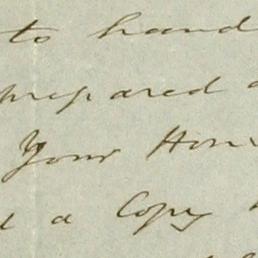 to hand
prepared
Your Hon
a Copy